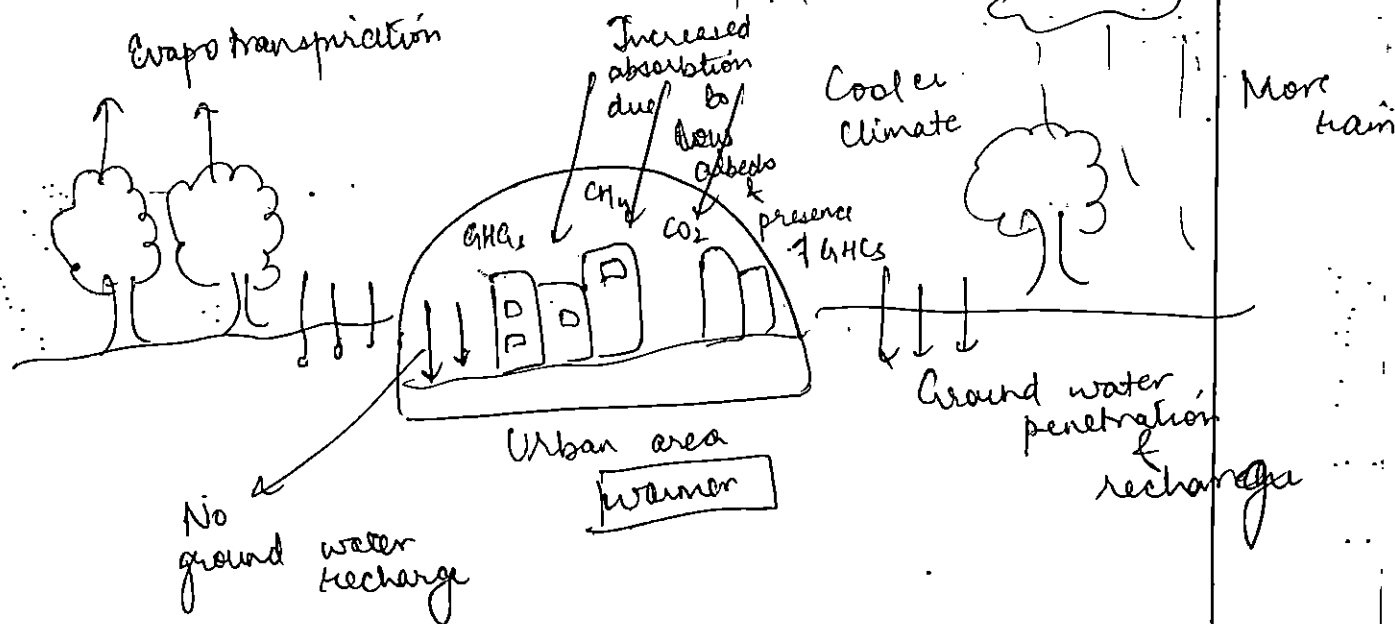 Evapotranspiration
Increased
absorbtion
due to
low
albedo
&
presence
of GHGs
Cooler
Climate
More
rain
GHGs
CH4
CO2
Urban area
warmer
No
ground water
recharge
Ground water
penetration
&
recharge